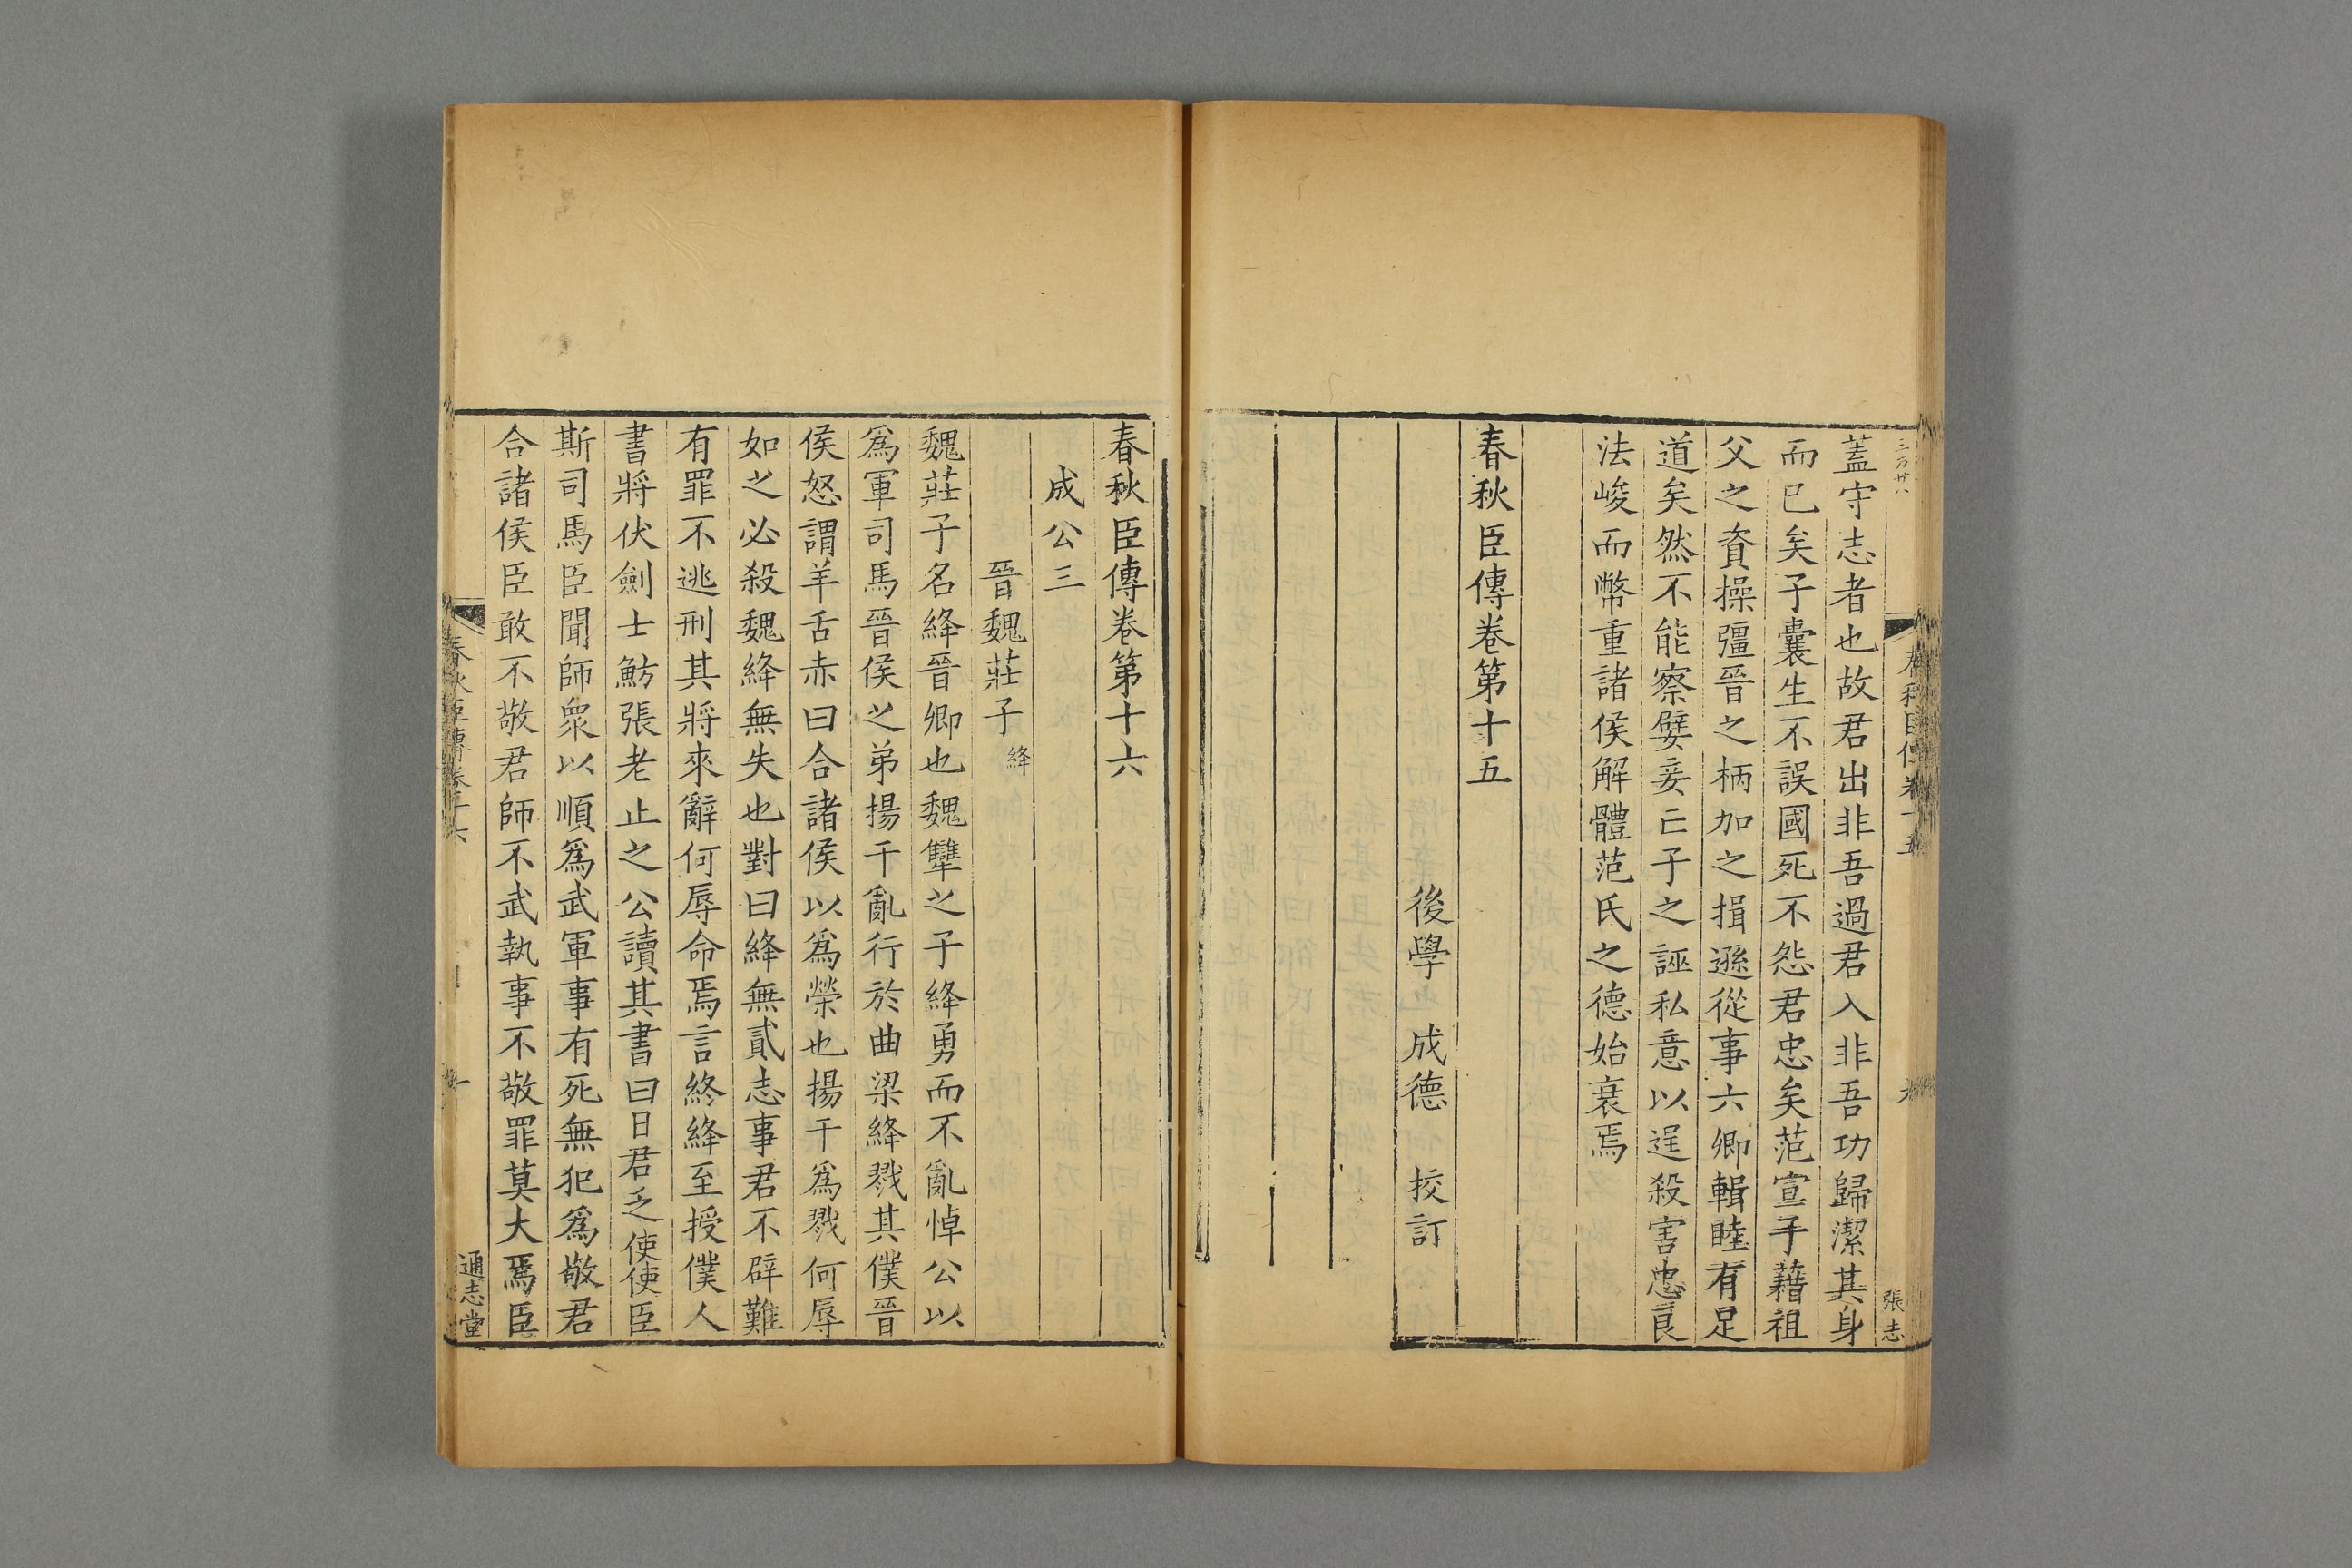 蓋守志者也故君出非吾過君入非吾功歸潔其身
而已矣子囊生不誤國死不怨君忠矣范宣子藉祖
父之資操彊晉之柄加之揖遜從事六卿輯睦有足
道矣然不能察嬖妾亡子之誣私意以逞殺害忠良
法峻而幣重諸侯解體范氏之德始衰焉
春秋臣傳卷第十五
後學 成德 校訂
張志
春秋臣傳卷第十六
成公三
晉魏莊子絳
魏莊子名絳晉卿也魏犨之子絳勇而不亂悼公以
爲軍司馬晉侯之弟揚干亂行於曲梁絳戮其僕晉
侯怒謂羊舌赤曰合諸侯以爲榮也揚干爲戮何辱
如之必殺魏絳無失也對曰絳無貳志事君不辟難
有罪不逃刑其將來辭何辱命焉言終絳至授僕人
書將伏劍士魴張老止之公讀其書曰日君乏使使臣
斯司馬臣聞師衆以順爲武軍事有死無犯爲敬君
合諸侯臣敢不敬君師不武執事不敬罪莫大焉臣
春秋臣傳卷十六
一
通志堂